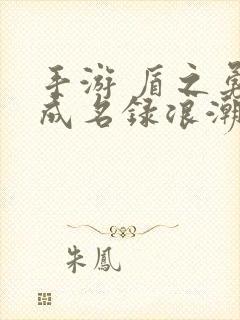 手游 盾之勇
成名録浪潮
朱鳳